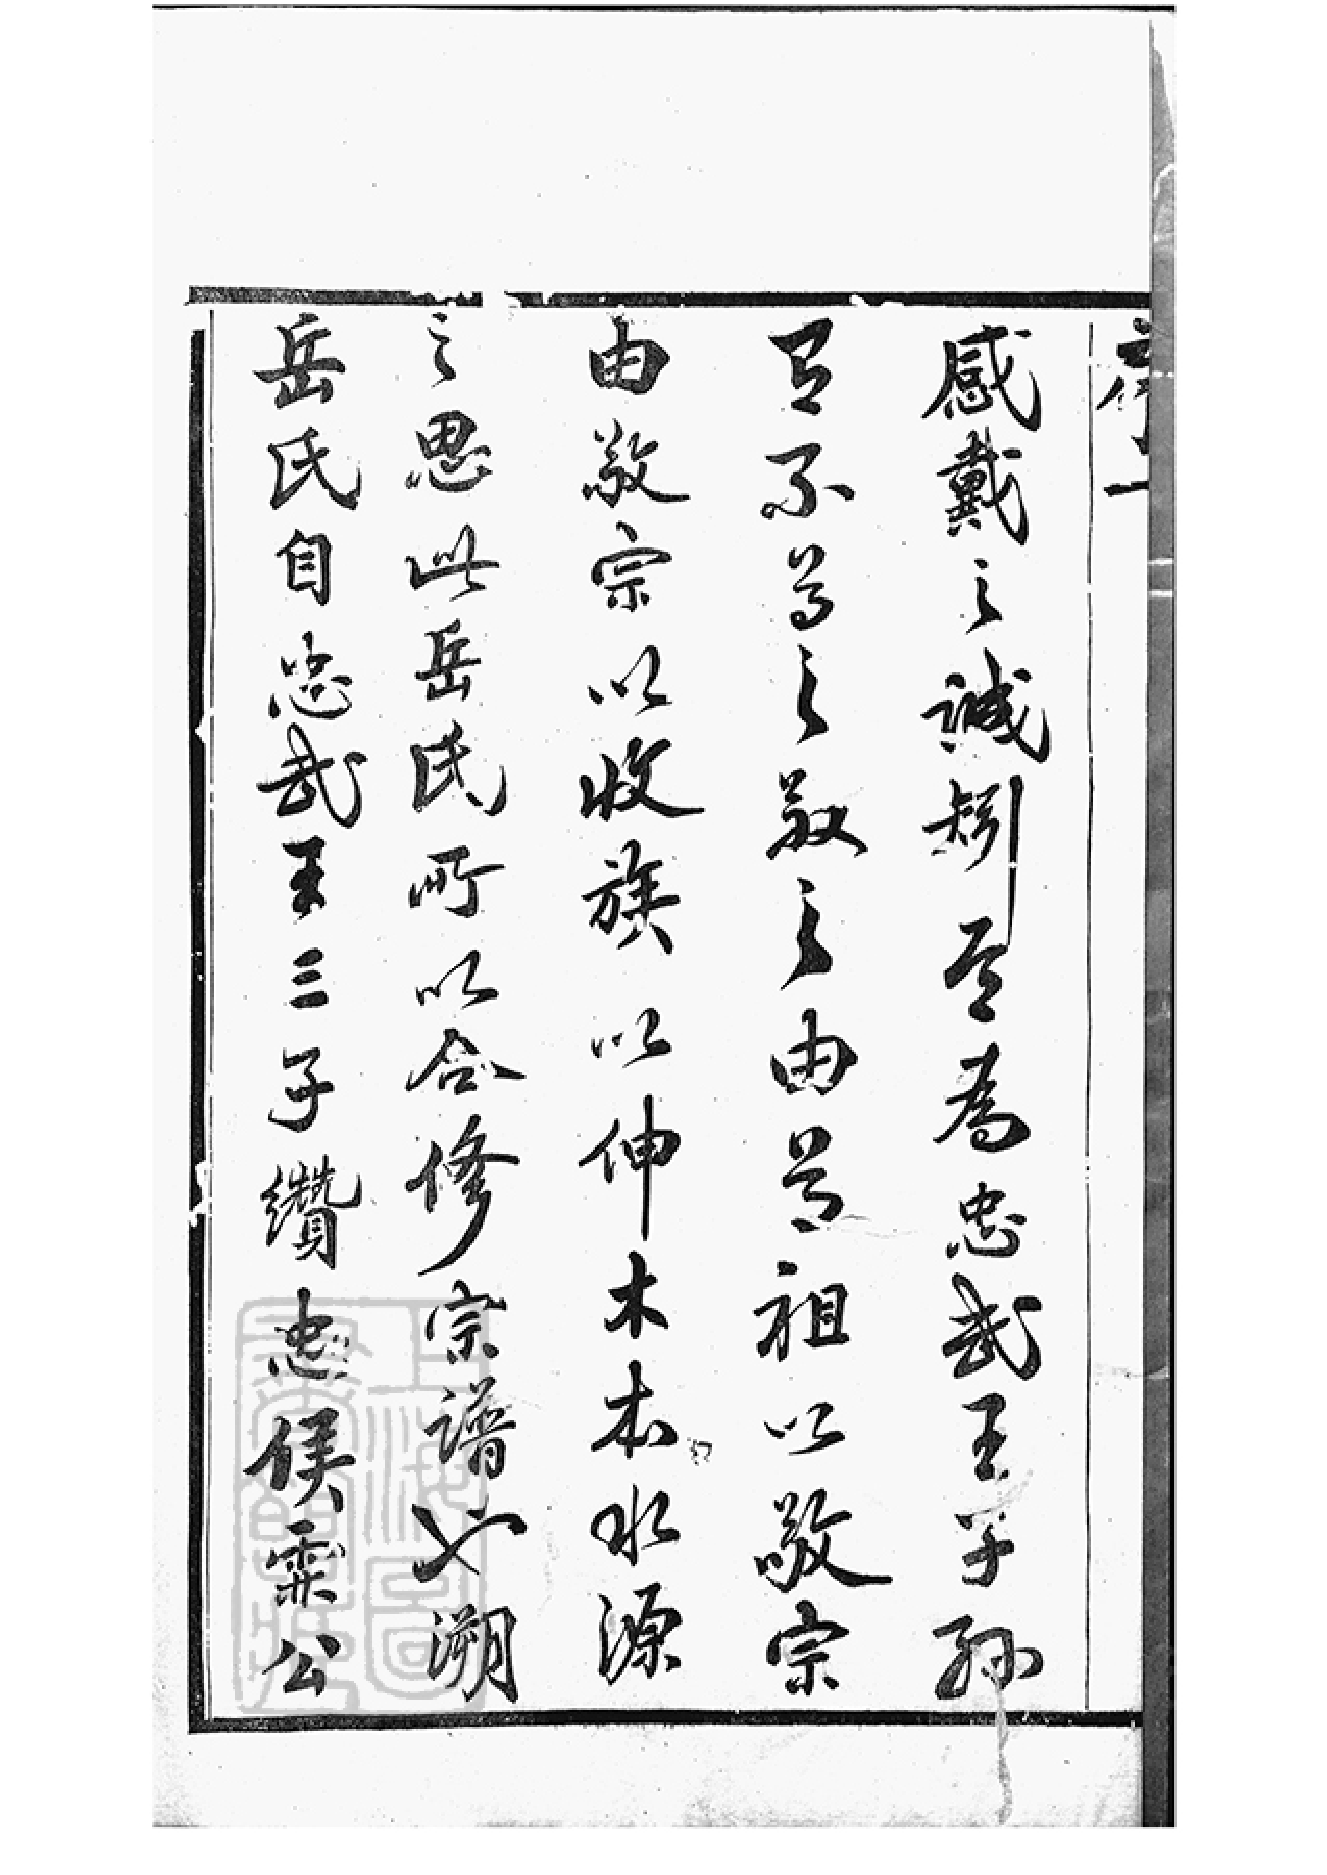 序一
感戴之誠矧為忠武王子孫
有不尊之敬之由尊祖以敬宗
由敬宗以收族以伸木本水源
之思此岳氏所以合修宗譜也溯
岳氏自忠武王三子纘忠侯霖公
上海圖書館藏